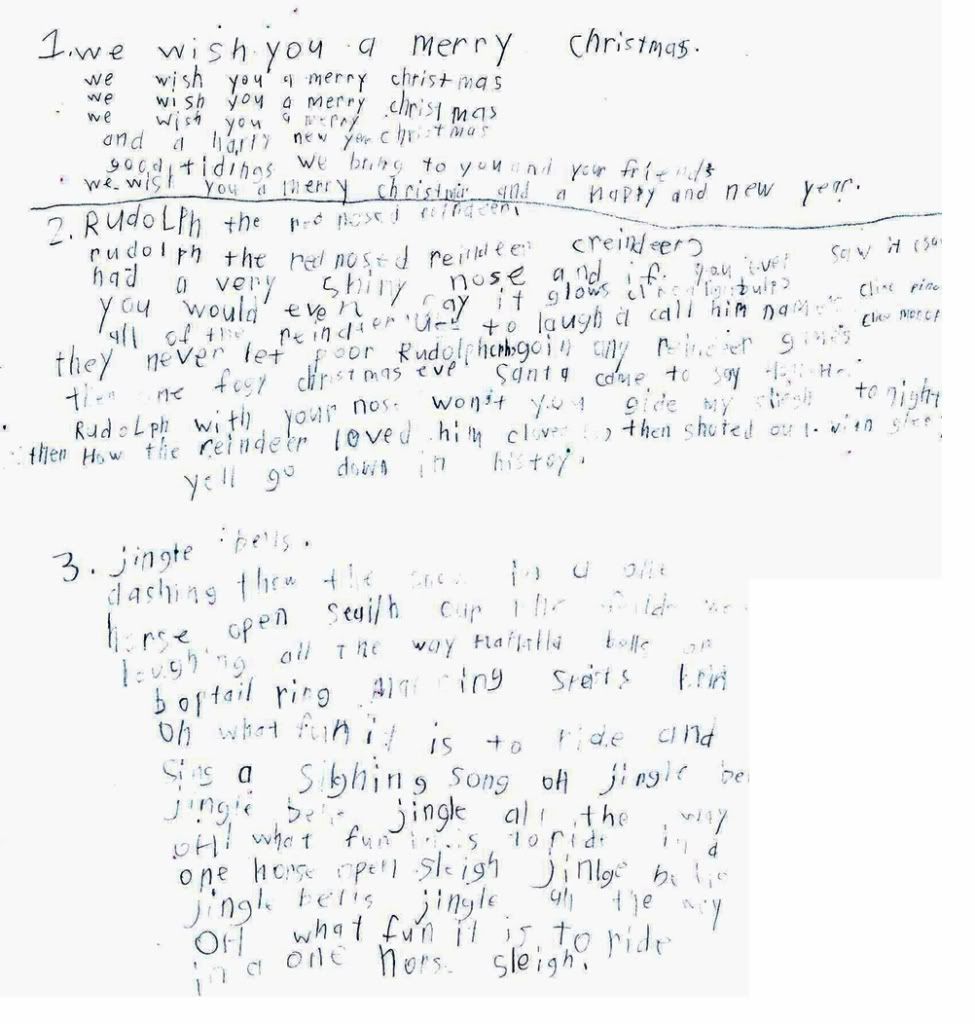 1. we wish you a merry christmas.
we wish you a merry christmas
we wish you a merry christmas
we wish you a merry christmas
and a happy new year
good tidings we bring to you and your friends
we wish you a merry christmas and a happy and new year.
2. RUdoLPh the red nosed reindeer.
rudolph the red nosed reindeer (reindeer) saw it
had a very shiny nose and if you ever
you would even say it glows (like
all of the reindeer to laugh & call him names
they never let poor Rudolph goin any reindeer games
then one fogy christmas eve Santa came to say
RudoLph with your nose won't you gide my sleigh tonight
then How the reindeer loved him then shoted out with glee
yell go down in histoy.
3. jingle bells.
dashing thew the snow in a one
horse open the
laughing all The way bells on
boptail ring
Oh what fun it is to ride and
Sing a song oH jingle
jingle jingle all the way
oH! what fun it is to ride in a
one horse open sleigh jinlge
jingle bells jingle all the way
OH what fun it is to ride
in a one hors sleigh.